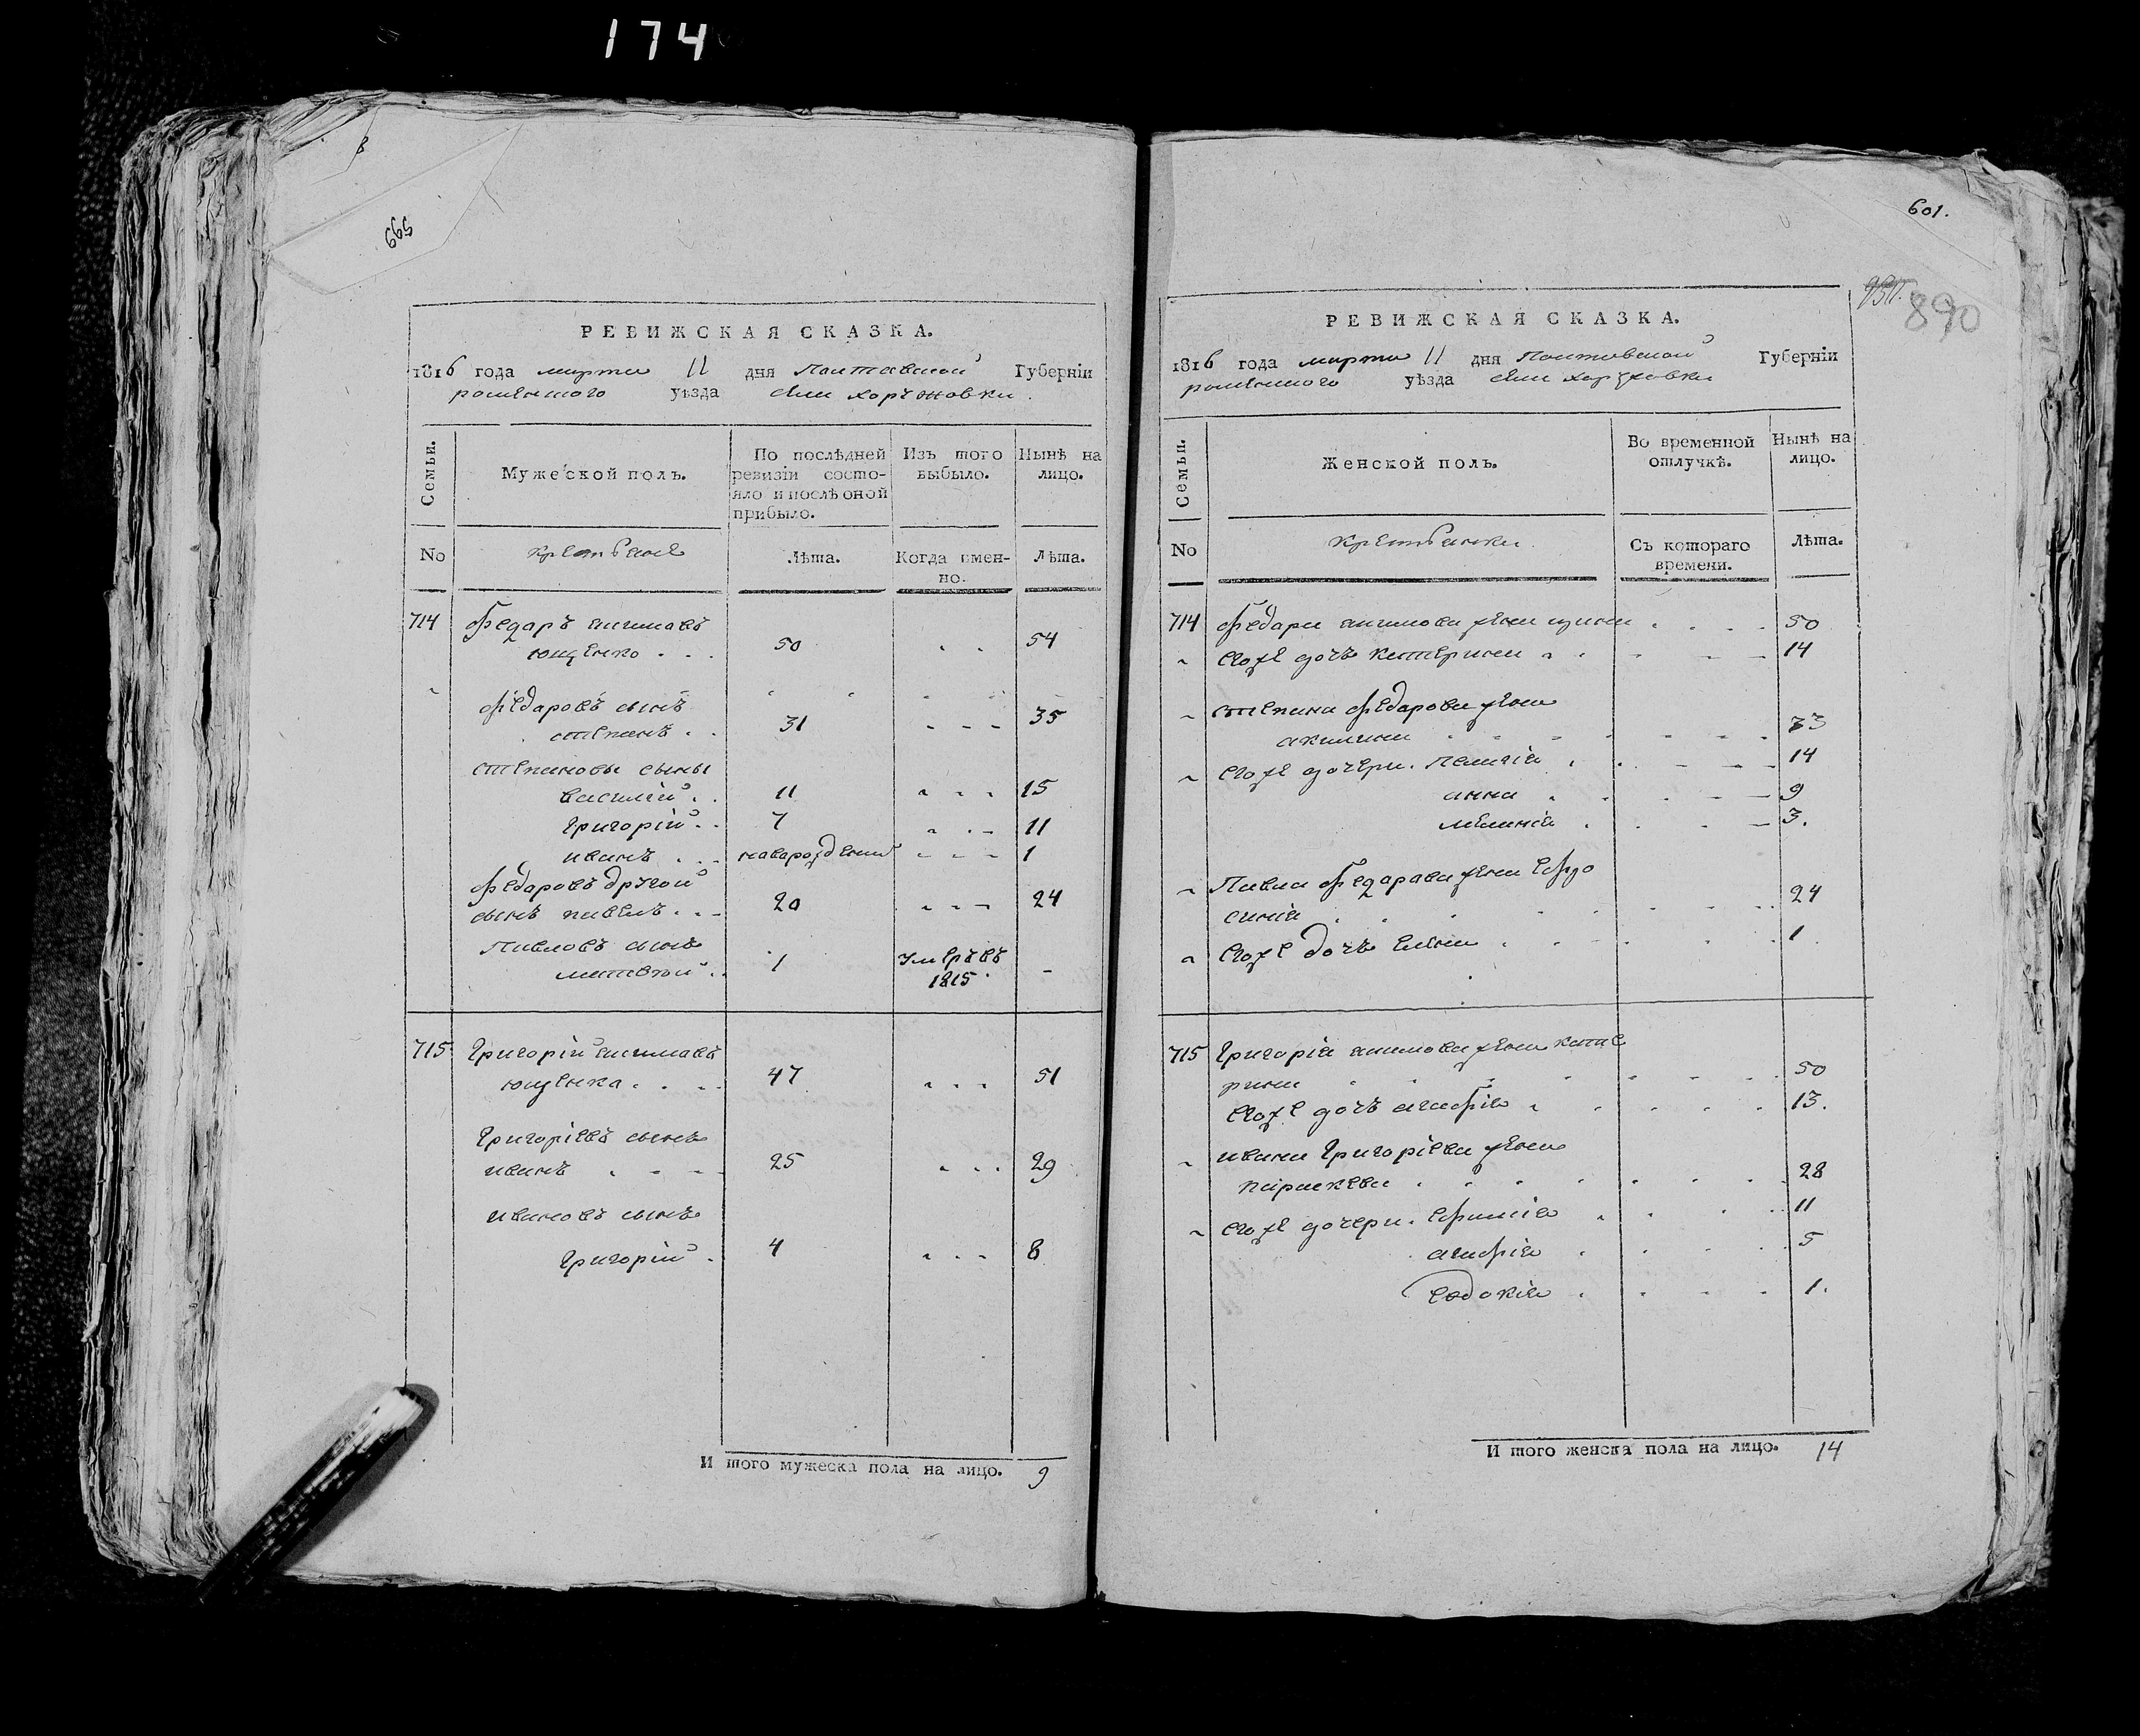 174
8
599
РЕВИЖСКАЯ СКАЗКА.
1816 года марта 11 дня Полтавской Губернїи
роменского уѣзда села Хоружовки.
Семьи.
Мужеской полъ.
По послѣдней ревизїи состо-
яло и послѣ оной прибыло.
Изъ того выбыло.
Нынѣ на лицо.
No
крестьяне
Лѣта.
Когда имен-
но.
Лѣта.
714 Федаръ
ющенко . . . 50 54
Федаровъ сынъ
степанъ . . 31 35
степановы сыны
василїй . . 11 15
григорїй . . 7 11
иванъ . . . новорожденый 1
Федаровъ другой
сынъ павелъ . . 20 24
Павловъ сынъ
матвѣй . . 1 умеръ въ 1815 -
715 Григорїй
ющенка . . . . 47 51
Григорїевъ сынъ
иванъ . . . . 25 29
ивановъ сынъ
григорїй . 4 8
И того мужеска пола на лицо. 9
601.
890
РЕВИЖСКАЯ СКАЗКА.
1816 года марта 11 дня Полтавской Губернїи
роменского уѣзда села Хоружовки
Семьи.
Женской полъ.
Во временной отлучкѣ.
Нынѣ на лицо.
No
Крестьянки.
Съ котораго времени.
Лѣта.
714 Федара жена 50
егоже дочь катерина 14
степана Федарова жена
акилина 33
егоже дочери. Пелагїя 14
анна 9
меланїя 3.
Павла Федарава жена ефро
синїя 24
егоже дочь елена 1
715 Григорїя жена кате
рина 50
егоже дочь агафїя 13.
ивана Григорїева жена
параскева 28
егоже дочери. ефимїя 11
агафїя 5
евдокїя 1.
И того женска пола на лицо. 14